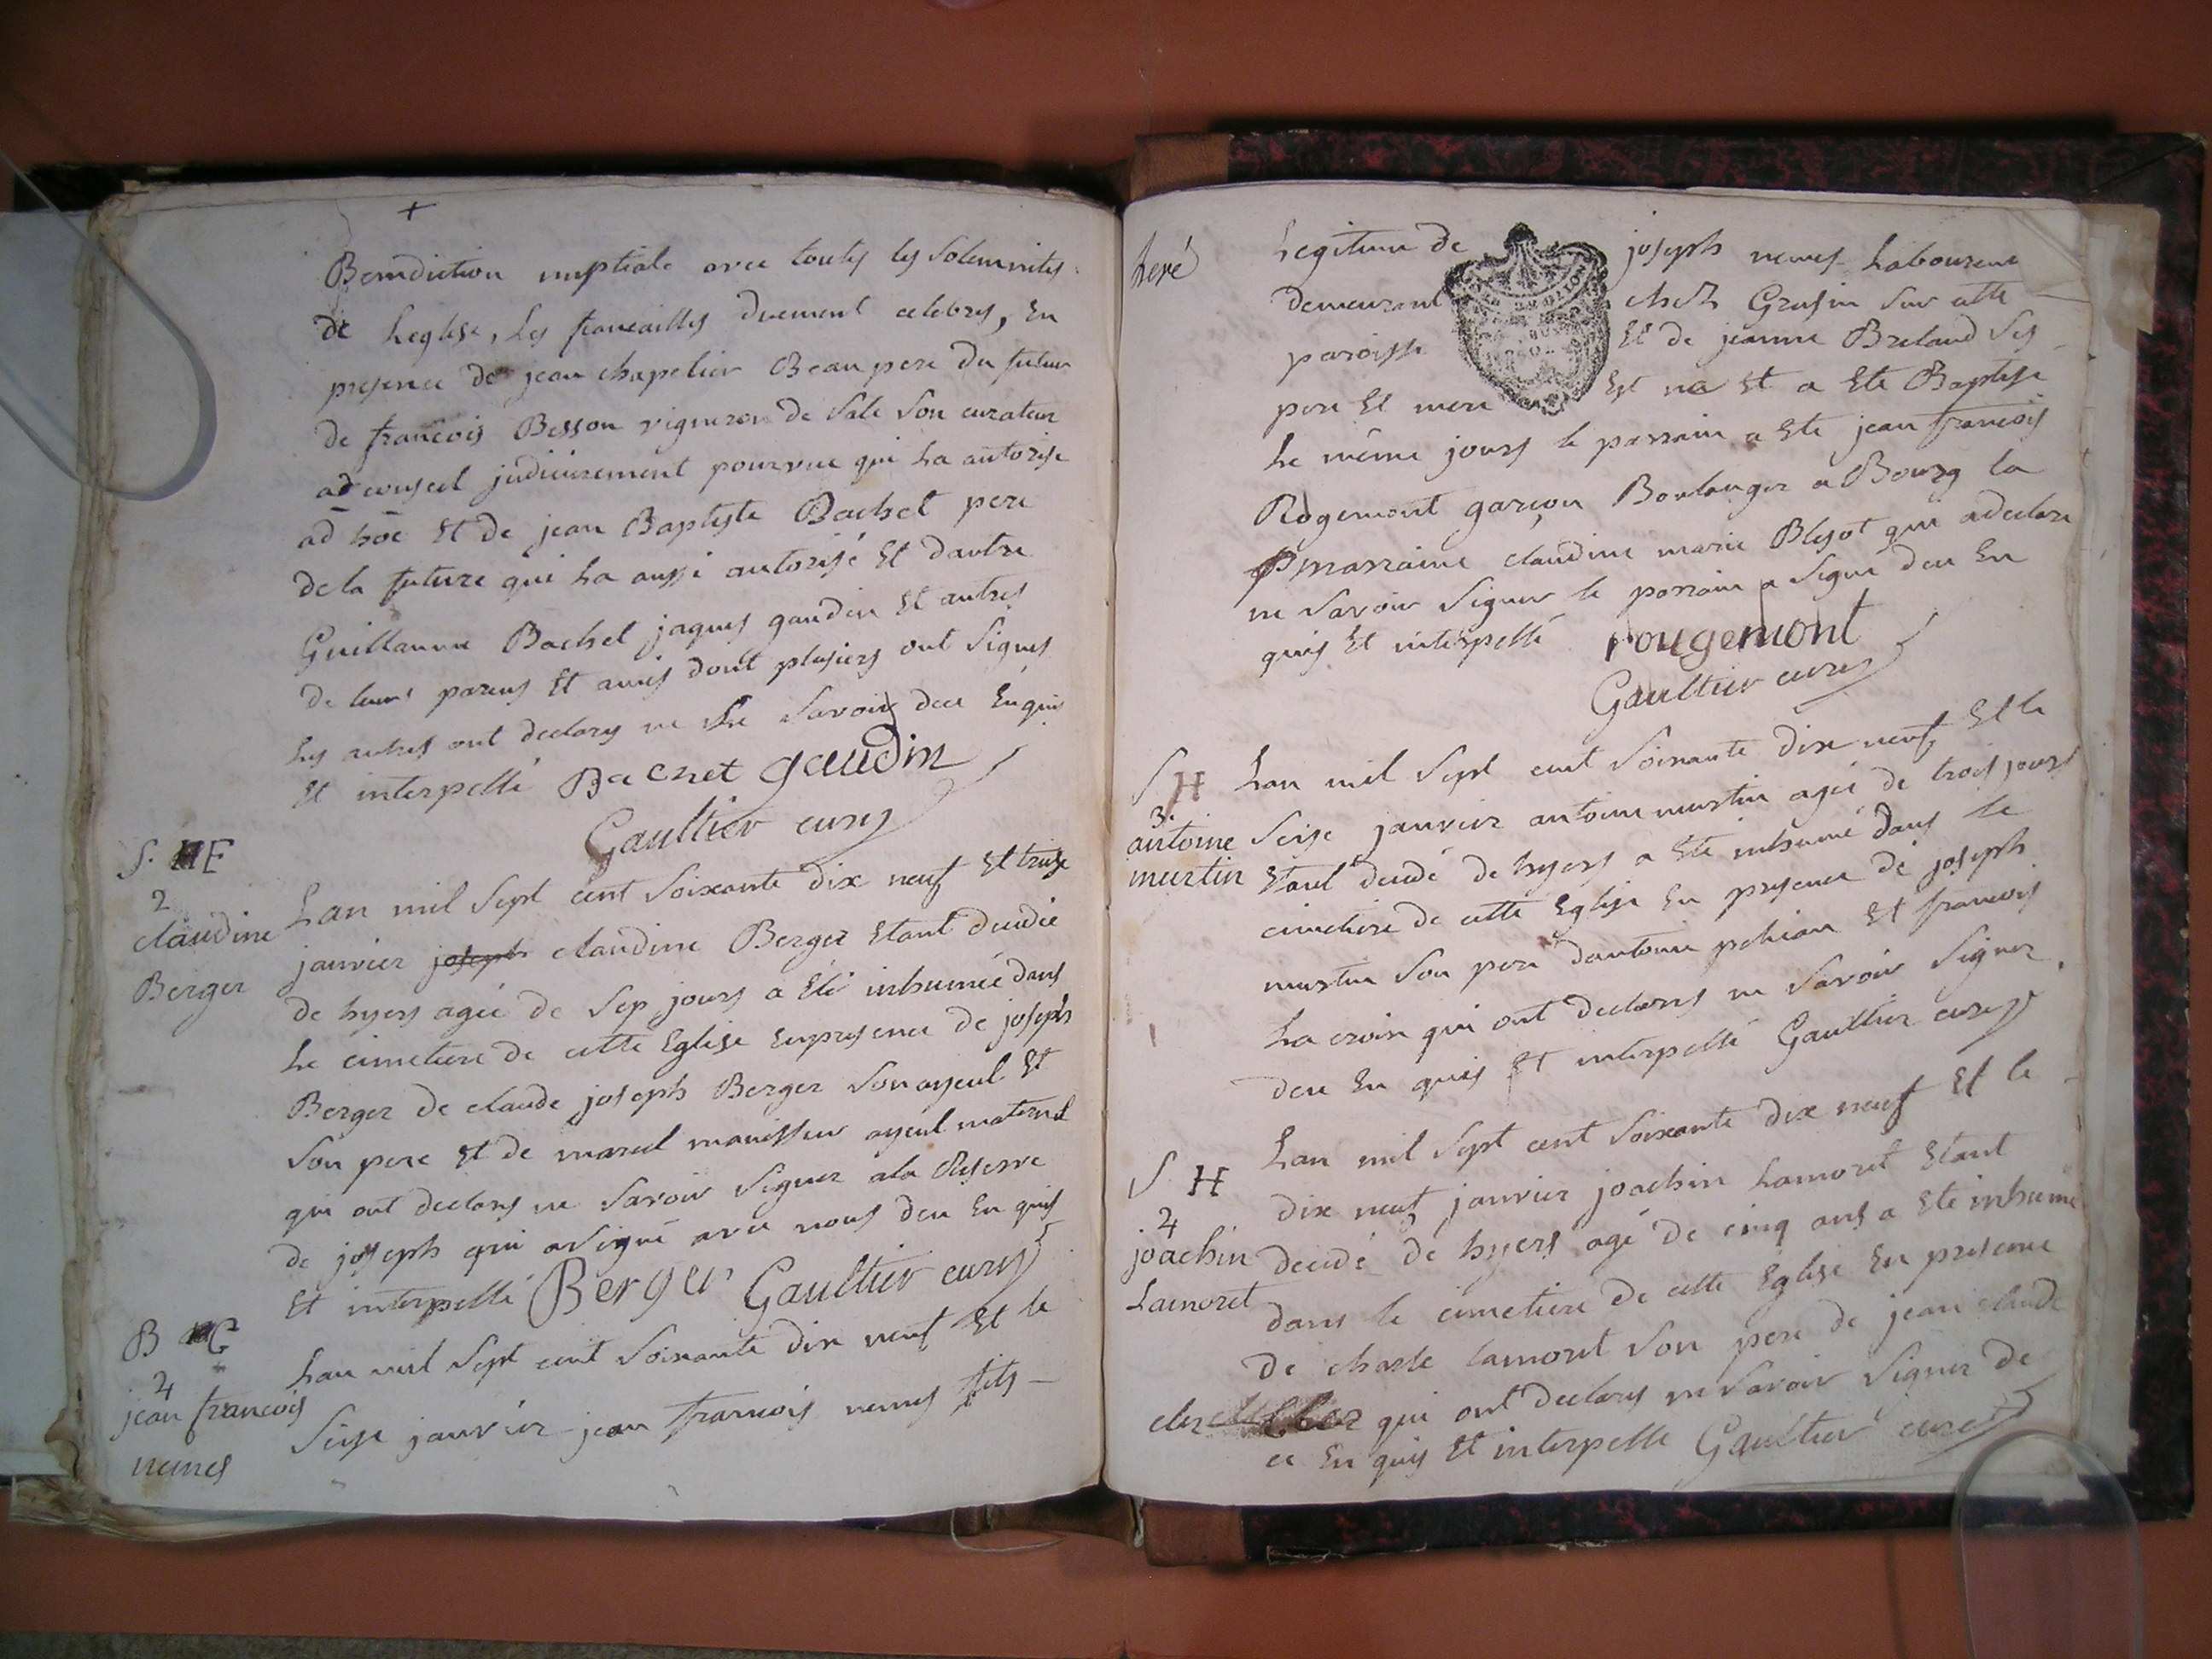 +
Benediction nuptiale avec toutes les Solemnites
de Leglise, Les fiancailles duement celebres, En
presence de jean chapelier Beaupere du futur
de francois Besson vigneron de Sale Son curateur
ad conseil judiciairement pourvue qui La autorise
ad hoc Et de jean Baptiste Bachet pere
de la future qui La aussi autorisé Et dautre
Guillaume Bachet jaques gaudin Et autres
de leurs parens Et amis dont plusiers ont Signes
Les autres ont declares ne Le Savoir dece Enquis
Et interpellé Bachet gaudin
Gaultier cures
S. E
2
claudine
Berger
Lan mil Sept cent Soixante dix neuf Et treise
janvier joseph claudine Berger Etant decidée
de hyers agée de Sep jours a Eté inhumée dans
Le cimetiere de cette Eglise Enpresence de joseph
Berger de claude joseph Berger Son ayeul Et
Son pere Et de marcel ayeul maternel
qui ont declares ne Savoir Signer ala Reserve
de joseph qui a Signé avec nous dece Enquis
Et interpellé Berger Gaultier cures
B G
4
jean francois
nemes
Lan mil Sept cent Soixante dix neuf Et le
Seise janvier jean francois nemes fils
Legitime de joseph nemes Laboureur
demeurant chez Grusin Sur cette
paroisse Et de jeanne Breland Ses
pere Et mere Est né Et a Ete Baptise
Le même jours le parrain a Ete jean francois
Rogemont garçon Boulanger a Bourg la
marraine claudine marie Blesot qui a declare
ne Savoir Signer le parrain a Signé dece En
quis Et interpellé rougemont
Gaultier cures
S H
3.
antoine
murtin
Lan mil Sept cent Soixante dix neuf Et le
Seise janvier antoine murtin agée de trois jours
Etant decidé de hyers a Eté inhumé dans le
cimetiere de cette Eglise En presence de joseph
murtin Son pere dantoine Et francois
La croix qui ont declares ne Savoir Signer
dece En quis Et interpellé Gaultier cures
S H
4
joachin
Lamoret
Lan mil Sept cent Soixante dix neuf Et le
dix neuf janvier joachin Lamoret Etant
decidé de hyers agé de cinq ans a Ete inhumé
dans le cimetiere de cette Eglise En presence
de charle Lamoret Son pere de jean claude
qui ont declares ne Savoir Signer de
ce En quis Et interpelle Gaultier cures